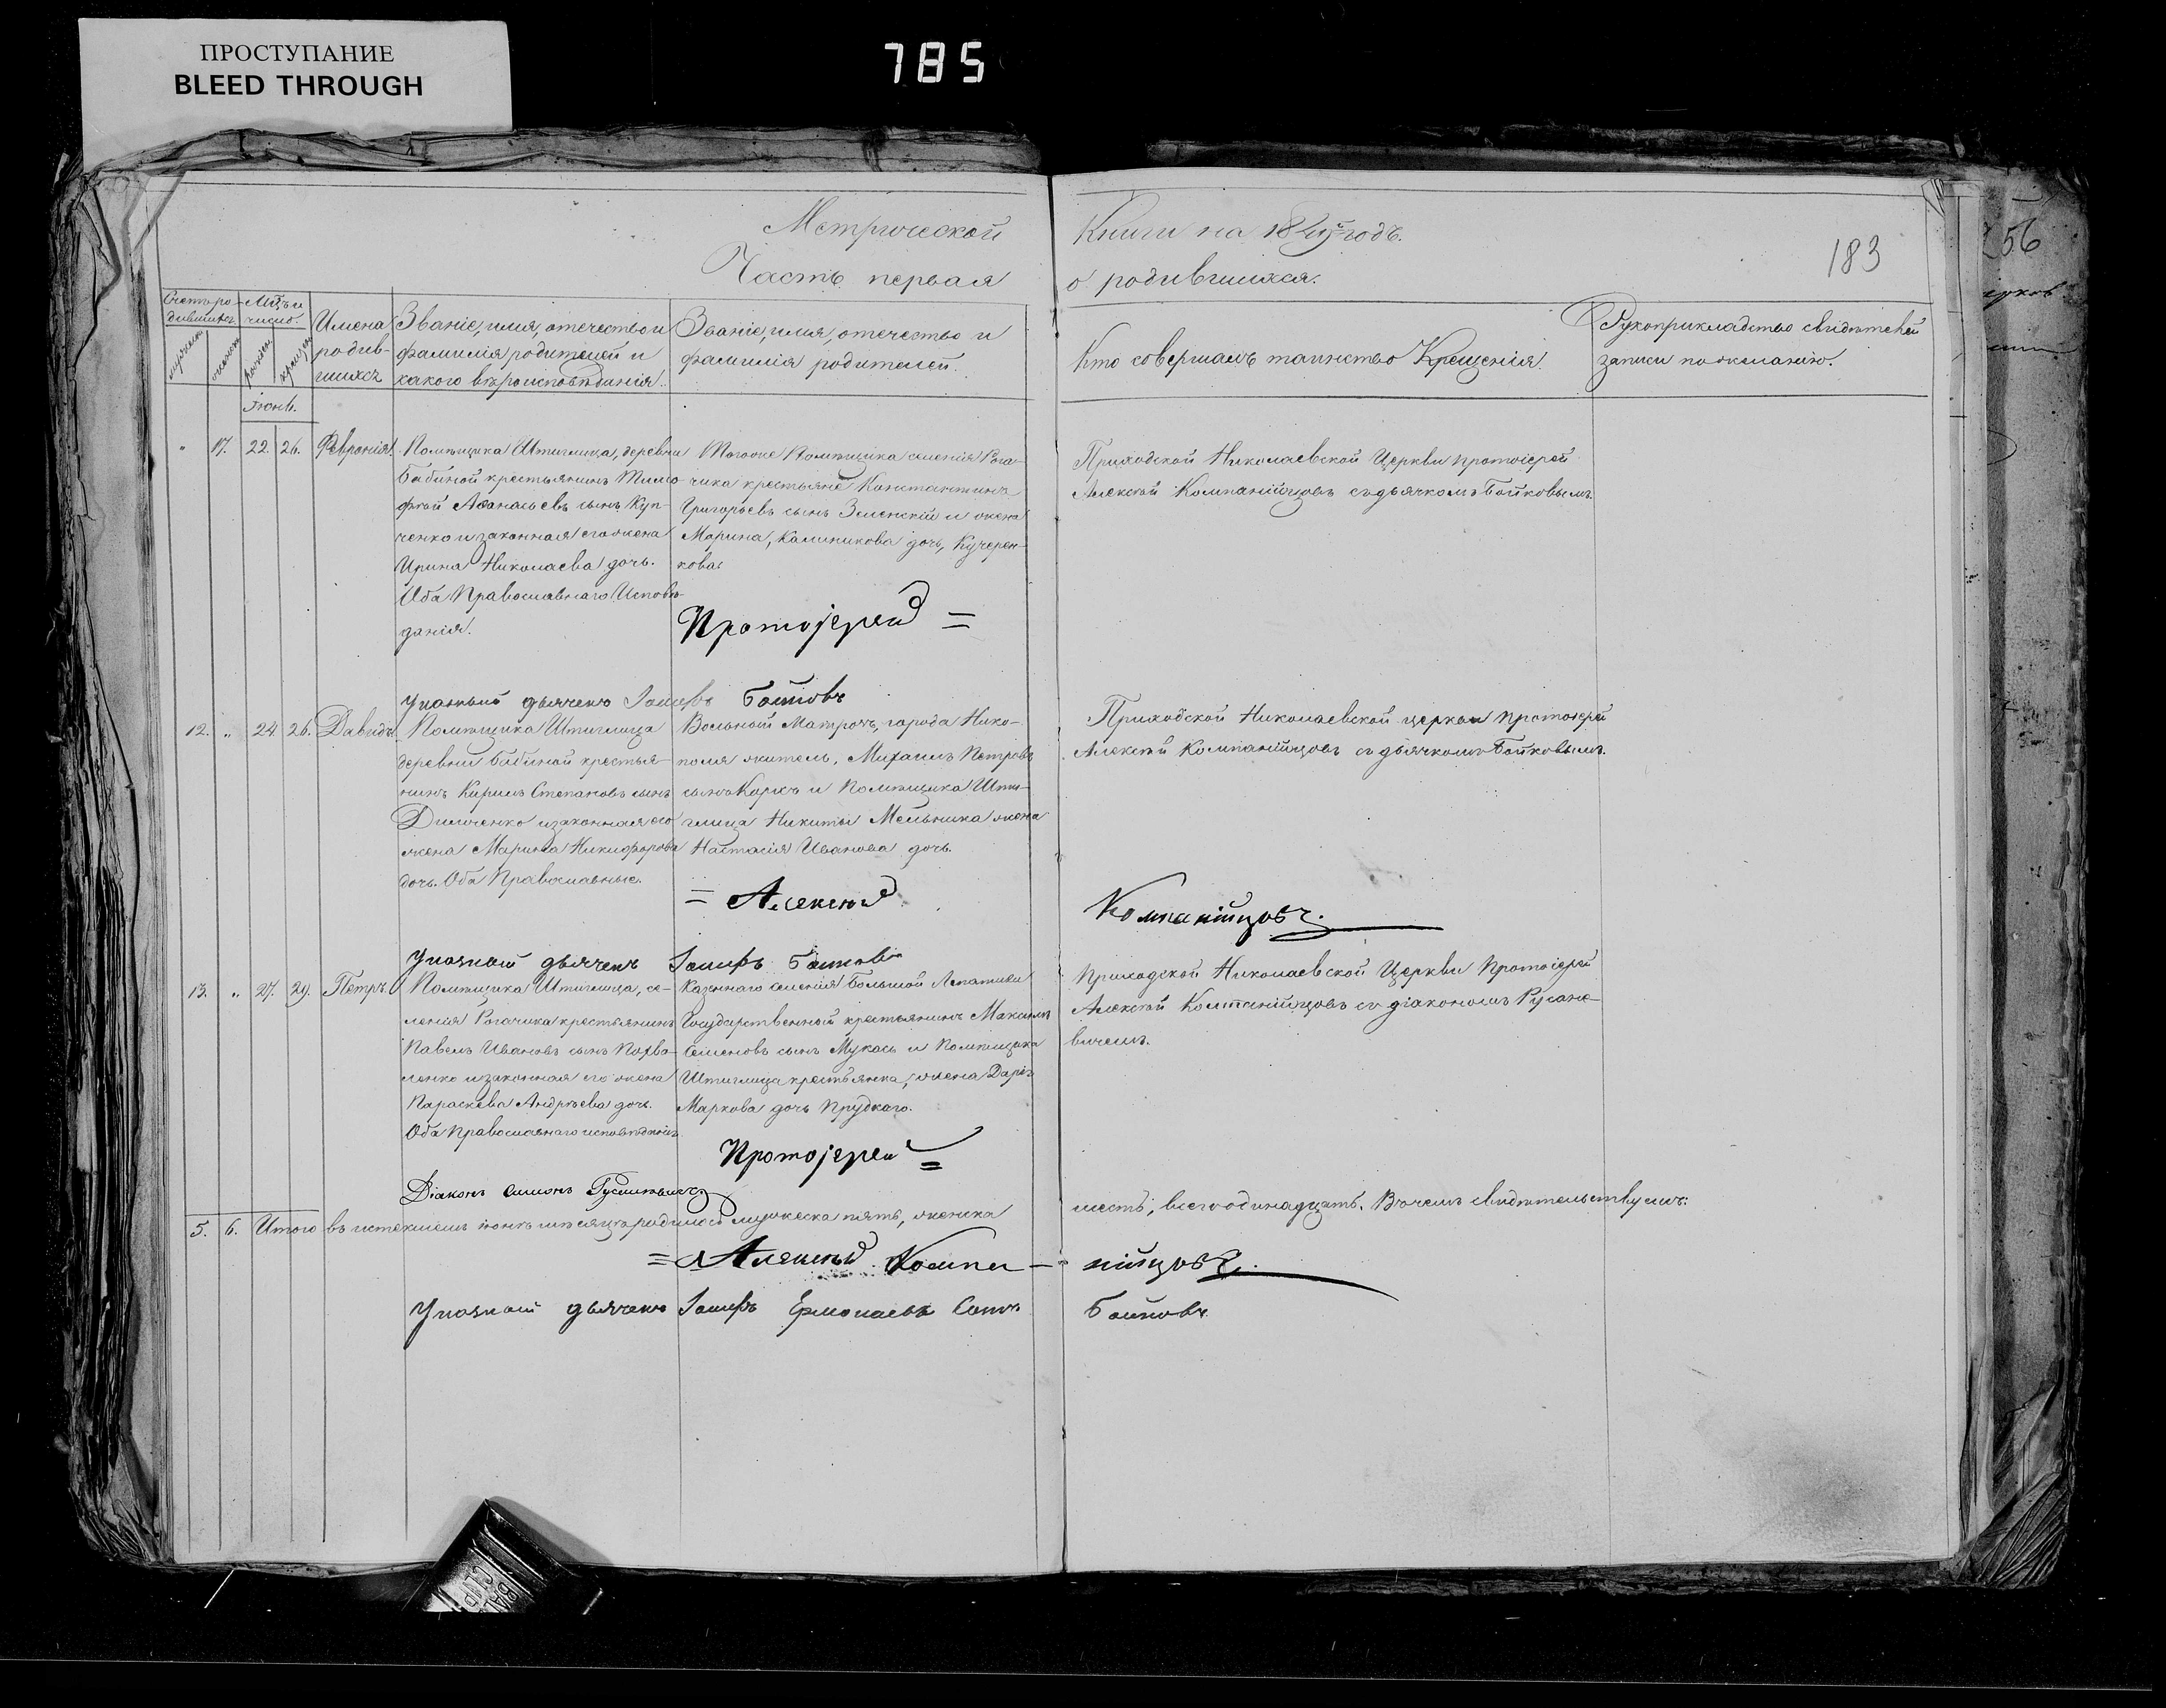 ПРОСТУПАНИЕ
BLEED THROUGH
785
Метрической Книги на 18 годъ.
183
56
Часть первая о родившихся.
Счетъ ро-
дившихся
Мѣсяцъ и
число.
Имена
родив-
шихся
Званіе, имя, отечество и
фамилія родителей и
какого вѣроисповѣданія.
Званіе, имя, отечество и
фамилія родителей.
Кто совершалъ таинство Крещенія.
Рукоприкладство свидѣтелей
записи по желанію.
Іюнь.
" 17. 22. 26. Февронія.
Помѣщика Штиглица, деревни
Бабиной крестьянинъ Тимо-
фей Аѳанасьевъ сынъ Куп-
ченко и законная его жена
Ирина Николаева дочь.
Оба Православнаго Исповѣ-
данія.
Тогоже Помѣщика селенія Рога-
чика крестьяне Константинъ
Григорьевъ сынъ Зеленскій и жена
Марина, Калиникова дочь, Кучерен-
кова.
Протоіерей =
Приходской Николаевской Церкви протоіерей
Алексѣй Компанійцовъ съ дьячкомъ Бойковымъ.
Указный дьячекъ Іосифъ Бойковъ
12. " 24. 26. Давидъ.
Помѣщика Штиглица
деревни Бабиной крестья-
нинъ Кирилъ Степановъ сынъ
Дымченко и законная его
жена Марина Никифорова
дочь. Оба Православные.
Вольный Матросъ, города Нико-
поля житель, Михаилъ Петровъ
сынъ Коржъ и Помѣщика Шти-
глица Никиты Мельника жена
Настасія Иванова дочь.
= Алексѣй
Приходской Николаевской церкви протоіерей
Алексѣй Компанійцовъ съ дьячкомъ Бойковымъ.
Компанійцовъ.
Указный дьячекъ Іосифъ Бойковъ
13. " 27. 29. Петръ.
Помѣщика Штиглица, се-
ленія Рогачика крестьянинъ
Павелъ Ивановъ сынъ Похва-
ленко и законная его жена
Параскева Андрѣева дочь.
Оба Православнаго исповѣданія.
Казеннаго селенія Большой Лепатихи
Государственный крестьянинъ Максимъ
Семеновъ сынъ Мукась и Помѣщика
Штиглица крестьянка, жена Дарія
Маркова дочь Прудкаго.
Протоіерей =
Приходской Николаевской Церкви Протоіерей
Алексѣй Компанійцовъ съ діакономъ Русане-
вичемъ.
Діаконъ Симонъ
5. 6. Итого въ истекшемъ іюнѣ мѣсяцѣ родилось мужеска пять, женска шесть, всего одинадцать. Въ чемъ свидѣтельствуемъ:
= Алексѣй Компа- нійцовъ.
Указный дьячекъ Іосифъ Ермолаевъ Сынъ Бойковъ